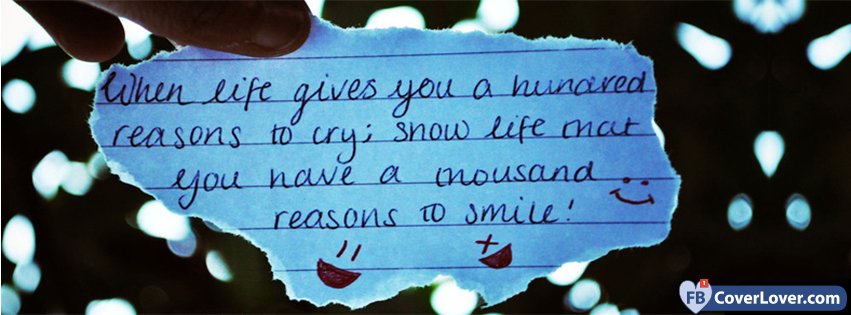 When life gives you a hundred
reasons to cry; show life that
you have a thousand
reasons to smile!
FB CoverLover.com
1